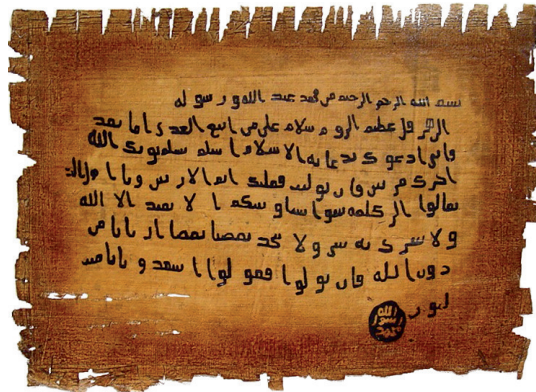 بسم الله الرحمن الرحيم من محمد عبد الله ورسوله
الى هرقل عظيم الروم سلام على من اتبع الهدى اما بعد
فانى ادعوك بدعاية الاسلام اسلم تسلم يوتك الله
اجرك مرتين فان توليت فعليك اثم الاريسين ويا اهل
تعالوا الى كلمة سوا بيننا وبينكم الا نعبد الا الله
ولا نشرك به شيئا ولا يتخذ بعضنا بعضا اربابا من
دون الله فان تولوا فقولوا اشهدوا بانا مس
لمون
الله
رسول
محمد